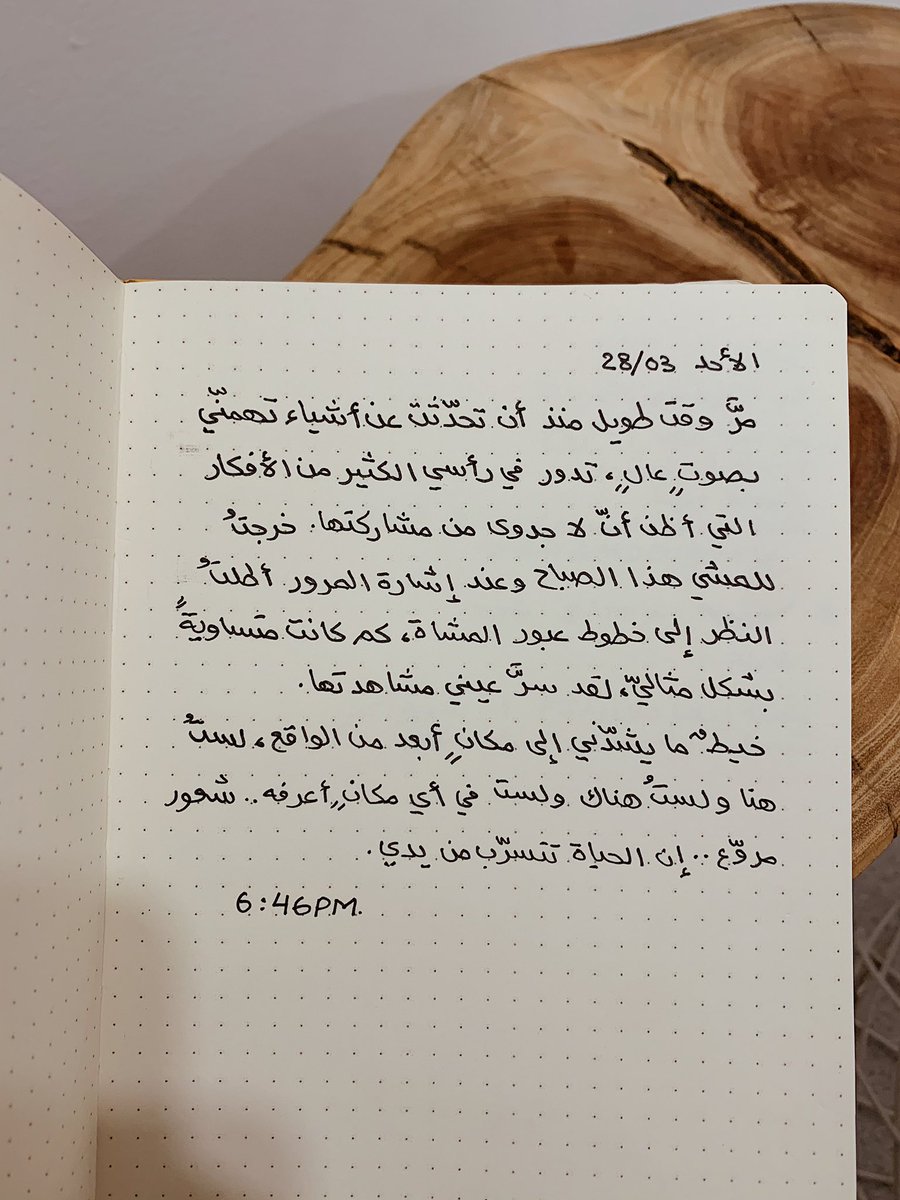 الأحد 28/03
مرَّ وقت طويل منذ أن تحدّثت عن أشياء تهمنّي
بصوتٍ عالٍ، تدور في رأسي الكثير من الأفكار
التي أظن أنّ لا جدوى من مشاركتها. خرجتُ
للمشي هذا الصباح وعند إشارة المرور أطلتُ
النظر إلى خطوط عبور المشاة، كم كانت متساويةً
بشكل مثاليّ، لقد سرَّ عيني مشاهدتها.
خيطٌ ما يشدّني إلى مكانٍ أبعد من الواقع، لستُ
هنا ولستُ هناك ولست في أي مكانٍ أعرفه.. شعور
مروّع.. إن الحياة تتسرّب من يدي.
6:46PM.